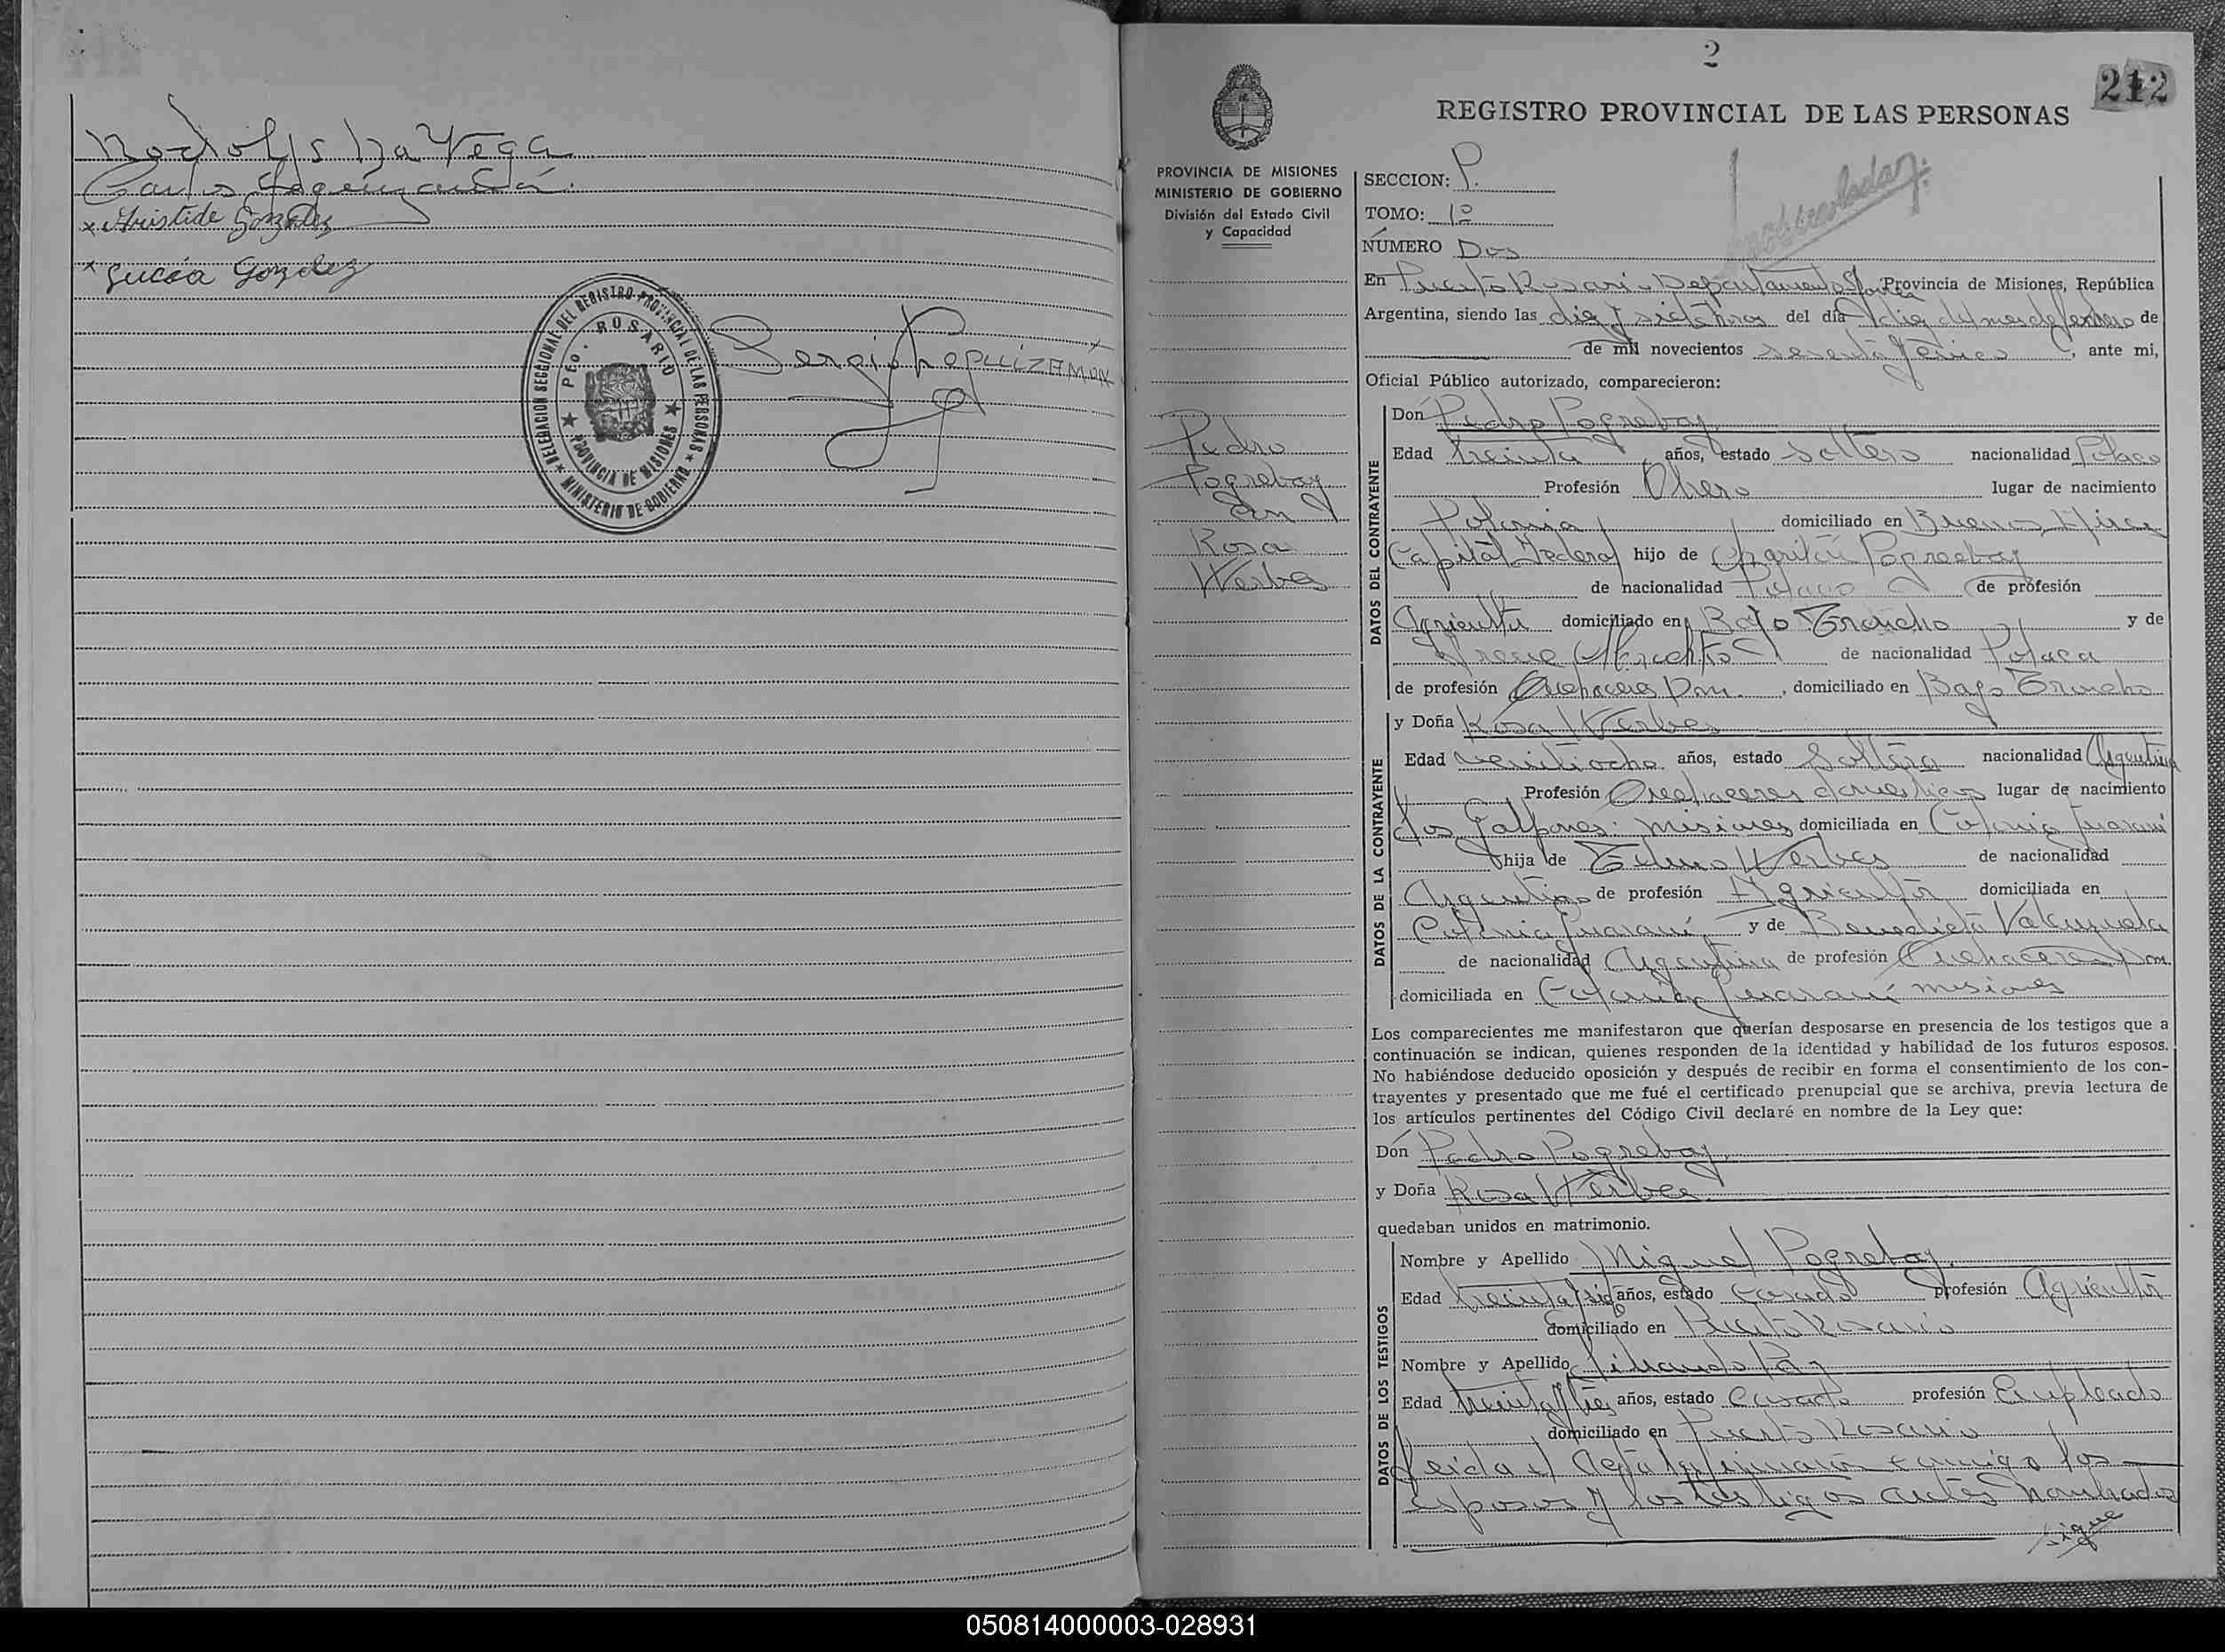 Rodolfo Da Vega
Carlos
× Aristide González
× Lucía González
DELEGACION SECCIONAL DEL REGISTRO PROVINCIAL DE LAS PERSONAS
★ MINISTERIO DE GOBIERNO ★
PTO. ROSARIO
★ PROVINCIA DE MISIONES ★
Sergio
2
212
REGISTRO PROVINCIAL DE LAS PERSONAS
PROVINCIA DE MISIONES
MINISTERIO DE GOBIERNO
División del Estado Civil
y Capacidad
Pedro
Pogreboy
con
Rosa
Werbes
SECCION: P.
TOMO: 1º
NÚMERO Dos
En Puerto Rosario Departamento Provincia de Misiones, República
Argentina, siendo las diez y siete horas del día diez del mes de enero de
de mil novecientos sesenta y , ante mi,
Oficial Público autorizado, comparecieron:
DATOS DEL CONTRAYENTE
Don Pedro Pogreboy
Edad treinta años, estado soltero nacionalidad Polaco
Profesión Obrero lugar de nacimiento
Polonia domiciliado en Buenos Aires
Capital Federal hijo de Pogreboy
de nacionalidad Polaco de profesión
Agricultor domiciliado en Bajo Troncho y de
de nacionalidad Polaca
de profesión Quehaceres Dom. , domiciliado en Bajo Troncho
DATOS DE LA CONTRAYENTE
y Doña Rosa Werbes
Edad veintiocho años, estado Soltera nacionalidad Argentina
Profesión Quehaceres domesticos lugar de nacimiento
Los Galpones Misiones domiciliada en Colonia Guaraní
hija de Telmo Werbes de nacionalidad
Argentino de profesión Agricultor domiciliada en
Colonia Guaraní y de Benedicta Valenzuela
de nacionalidad Argentina de profesión Quehaceres Dom.
domiciliada en Colonia Guaraní Misiones
Los comparecientes me manifestaron que querían desposarse en presencia de los testigos que a
continuación se indican, quienes responden de la identidad y habilidad de los futuros esposos.
No habiéndose deducido oposición y después de recibir en forma el consentimiento de los con-
trayentes y presentado que me fué el certificado prenupcial que se archiva, previa lectura de
los artículos pertinentes del Código Civil declaré en nombre de la Ley que:
Don Pedro Pogreboy
y Doña Rosa Werbes
quedaban unidos en matrimonio.
DATOS DE LOS TESTIGOS
Nombre y Apellido Miguel Pogreboy
Edad treinta y años, estado Casado profesión Agricultor
domiciliado en Puerto Rosario
Nombre y Apellido
Edad treinta y tres años, estado Casado profesión Empleado
domiciliado en Puerto Rosario
Leída el Acta la firmaron conmigo los
esposos y los testigos antes nombrados
sigue
050814000003-028931